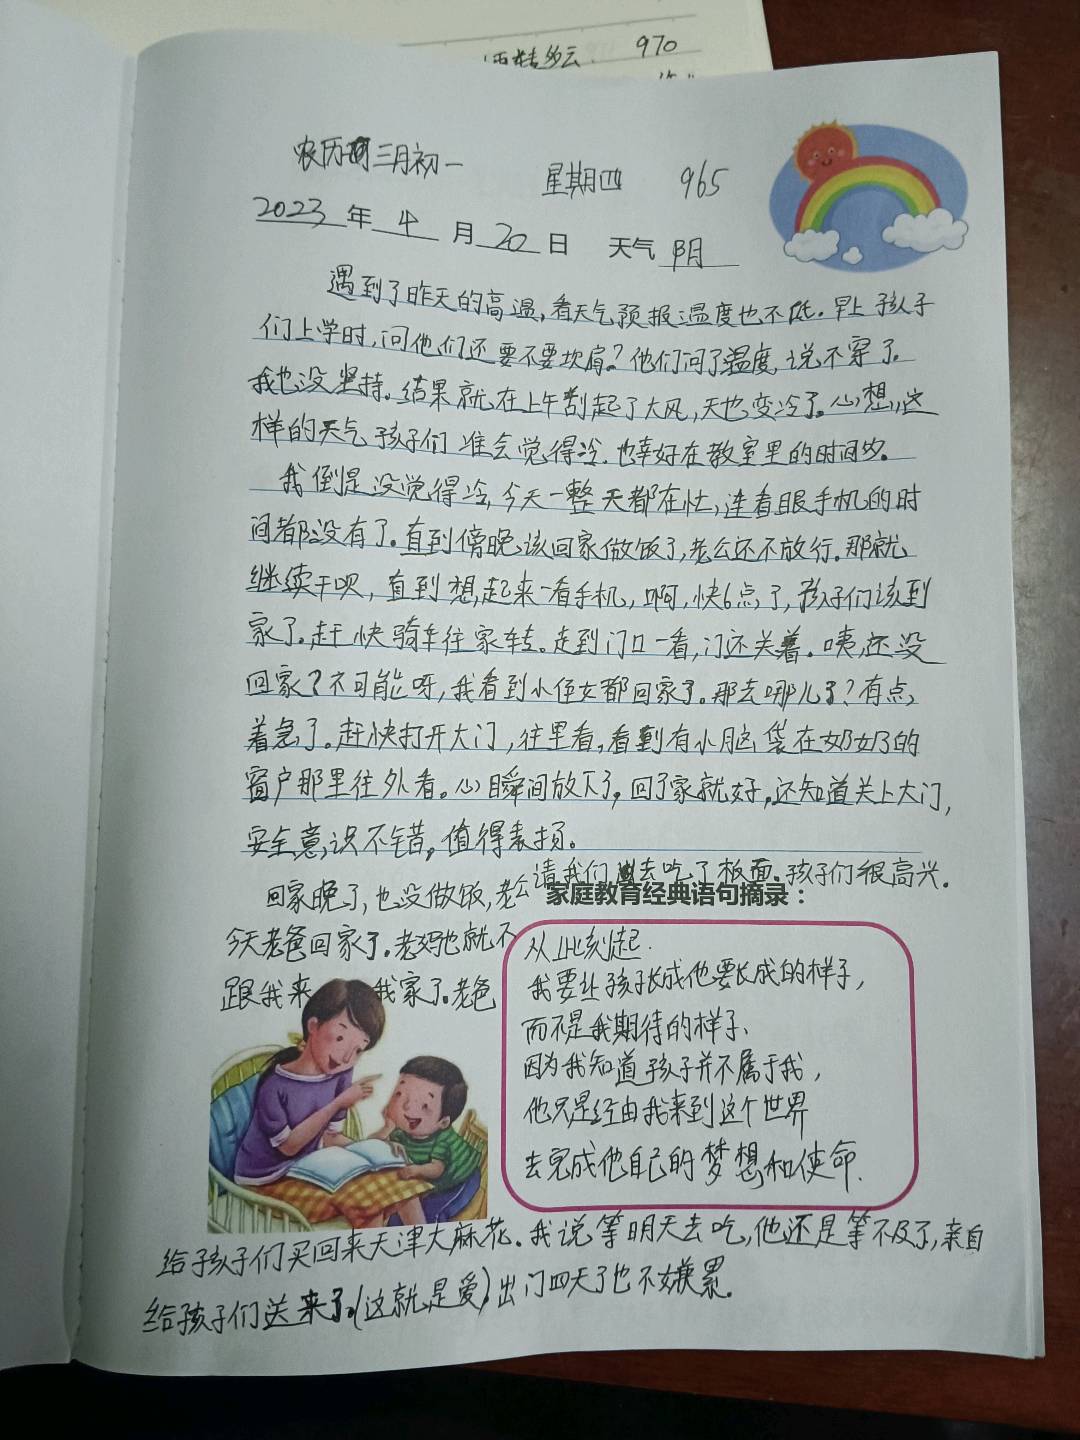 970
农历三月初一 星期四 965
2023年4月20日 天气 阴
遇到了昨天的高温,看天气预报温度也不低.早上孩子
们上学时,问他们还要不要坎肩?他们问了温度,说不穿了.
我也没坚持.结果就在上午刮起了大风,天也变冷了。心想,这
样的天气孩子们准会觉得冷.也幸好在教室里的时间多.
我倒是没觉得冷,今天一整天都在忙,连看眼手机的时
间都没有了.直到傍晚,该回家做饭了,老公还不放行.那就
继续干呗,直到想起来一看手机,啊,快6点了,孩子们该到
家了.赶快骑车往家转。走到门口一看,门还关着.咦,还没
回家?不可能呀,我看到小侄女都回家了.那去哪儿了?有点
着急了。赶快打开大门,往里看,看到有小脑袋在奶奶的
窗户那里往外看。心瞬间放下了,回了家就好,还知道关上大门,
安全意识不错,值得表扬。
回家晚了,也没做饭,老公请我们去吃了板面.孩子们很高兴.
今天老爸回家了.老妈也就不
跟我来我家了.老爸
家庭教育经典语句摘录:
从此刻起.
我要让孩子长成他要长成的样子,
而不是我期待的样子、
因为我知道孩子并不属于我,
他只是经由我来到这个世界
去完成他自己的梦想和使命.
给孩子们买回来天津大麻花.我说等明天去吃,他还是等不及了,亲自
给孩子们送来了.(这就是爱)出门四天了也不嫌累.